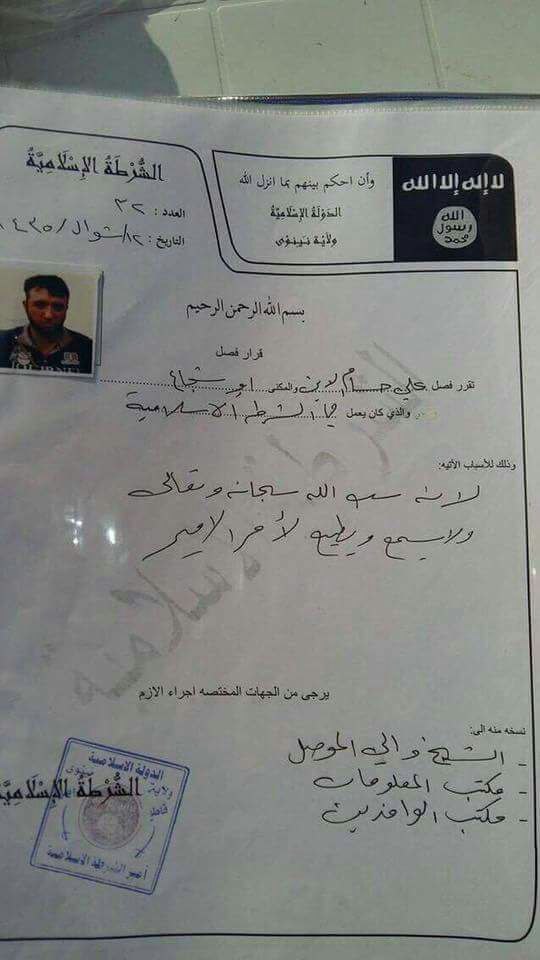 الشُّرْطَةُ الإِسْلَامِيَّةُ
العدد : ٣٢
التاريخ : ١٢/شوال/١٤٣٥
وأن احكم بينهم بما انزل الله
الدَوْلَةُ الإِسْلَامِيَّةُ
ولَايَة نَينَوَى
لا إله إلا الله
الله
رسول
محمد
بسم الله الرحمن الرحيم
قرار فصل
تقرر فصل علي حسام الدين والمكنى ابو شجاع
والذي كان يعمل في الشرطة الاسلامية
وذلك للأسباب الأتيه:
لانه سب الله سبحانه وتعالى
ولا يسمع ويطيع لأمر الامير
يرجى من الجهات المختصه اجراء الازم
نسخه منه الى:
- الشيخ والي الموصل
- مكتب المعلومات
- مكتب الوافدين
الشُّرْطَةُ الإِسْلَامِيَّةُ
الدولة الاسلامية
ولاية نينوى
أمير الشرطة الاسلامية